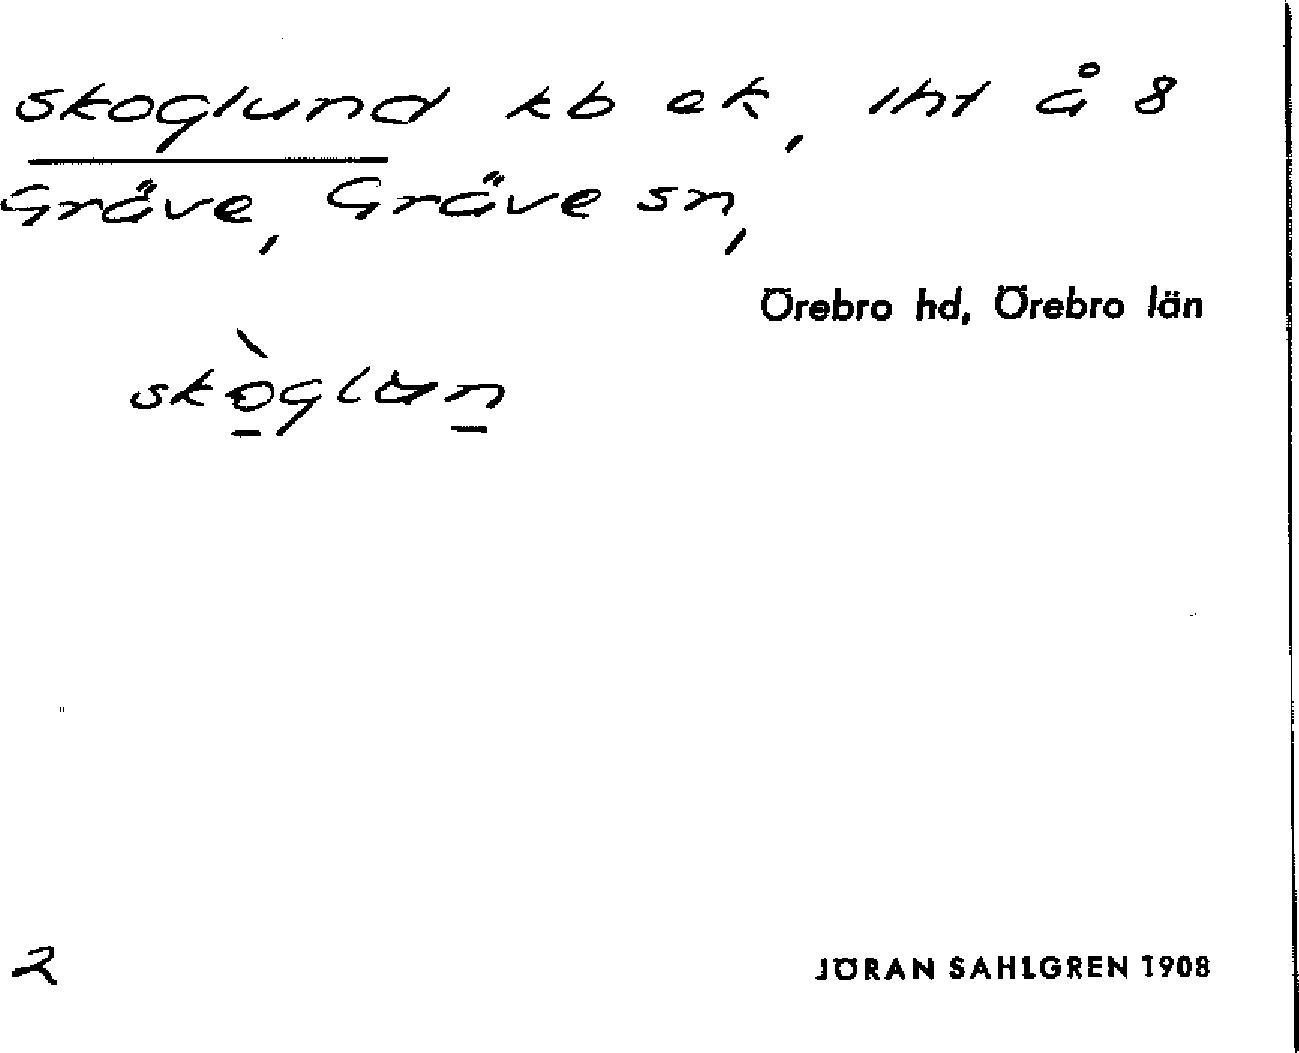 skoglund kb ek, lht å 8
Gräve, Gräve sn,
Örebro hd, Örebro län
skòglɷn
2
JÖRAN SAHLGREN 1908